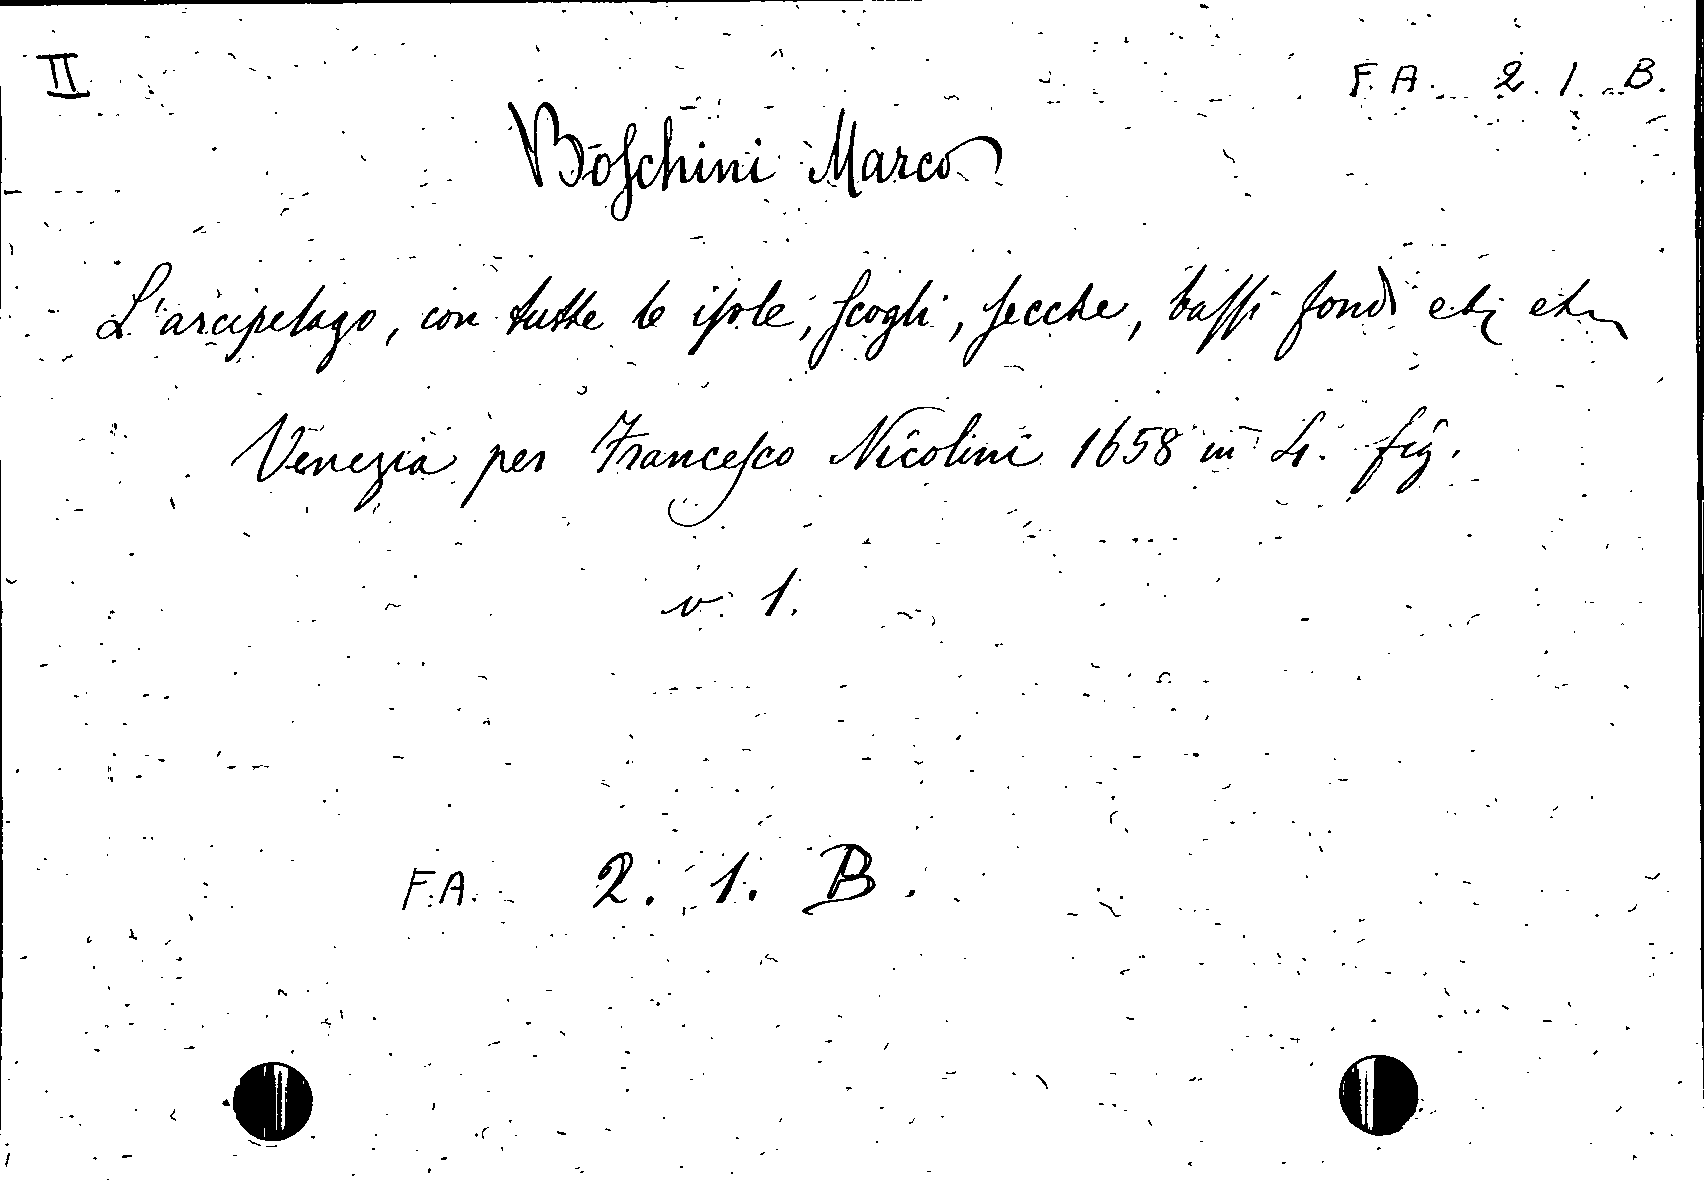 II
F. A. 2. 1. B.
Boſchini Marco
L'arcipelago, con tutte le iſole, ſcogli, ſecche, baſſi fondi etc etc
Venezia per Franceſco Nicolini 1658 in 4. fig.
v. 1.
F. A. 2. 1. B.